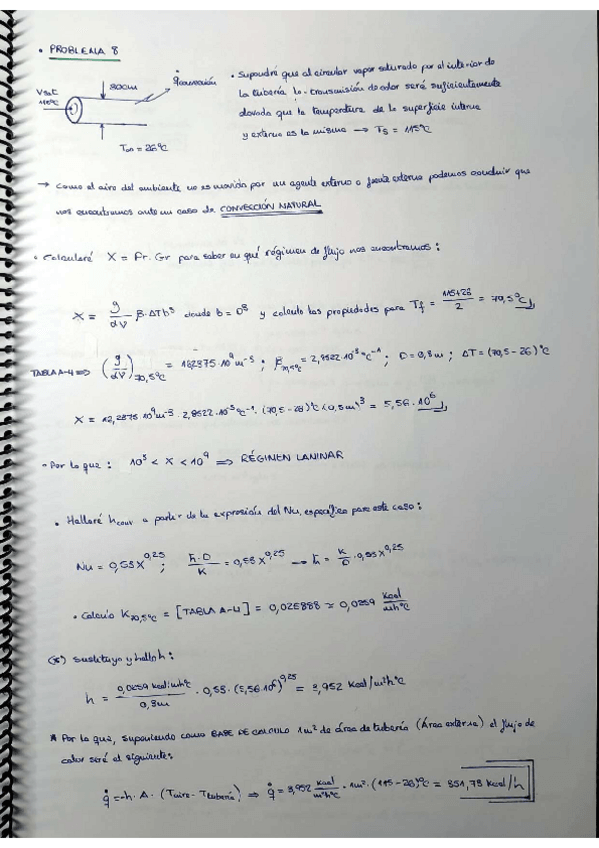 • PROBLEMA 8
• Supondré que al circular vapor saturado por el interior de
la tubería la transmisión de calor será suficientemente
elevada que la temperatura de la superficie interna
y externa es la misma → Ts = 115ºC
Vsat
80cm
q̇convección
T∞ = 26ºC
→ Como el aire del ambiente no es movido por un agente externo o fuerza externa podemos concluir que
nos encontramos ante un caso de CONVECCIÓN NATURAL
• Calcularé X = Pr. Gr para saber en qué régimen de flujo nos encontramos:
X = g/αν β·ΔTb³ donde b = D y calculo las propiedades para Tf = 115+26/2 = 70,5ºC
TABLA A-4 ⇒ (g/αν)70,5ºC = ·10⁹ m⁻³ ; β70,5ºC = 2,8522·10⁻³ ºC⁻¹ ; D = 0,8m ; ΔT = (70,5 - 26) ºC
X = ·10⁹ m⁻³ · 2,8522·10⁻³ ºC⁻¹ · (70,5 - 26)ºC · (0,8m)³ = 5,56·10⁶
• Por lo que : 10³ < X < 10⁹ ⇒ RÉGIMEN LAMINAR
• Hallaré hconv a partir de la expresión del Nu, específica para este caso:
Nu = 0,53X^0,25 ; h·D/K = 0,53 X^0,25 → h = K/D · 0,53 X^0,25
• Calculo K70,5ºC = [TABLA A-4] = 0,025888 ≈ 0,0259 Kcal/mhºC
(*) Sustituyo y hallo h :
h = 0,0259 Kcal/mhºC / 0,8m · 0,53 · (5,56·10⁶)^0,25 = Kcal/m²hºC
* Por lo que, suponiendo como BASE DE CALCULO 1m² de área de tubería (Área externa) el flujo de
calor será el siguiente:
q̇ = -h · A · (Taire - Ttubería) ⇒ q̇ = 3,952 Kcal/m²hºC · 1m² · (115 - 26)ºC = 351,73 Kcal/h